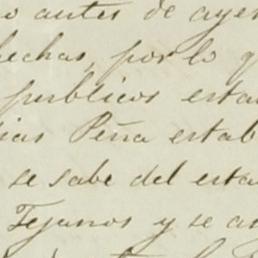 o antes de ayer
hechas, por lo q
publicos esta
ias Peña estab
se sabe del esta
Tejanos y se a